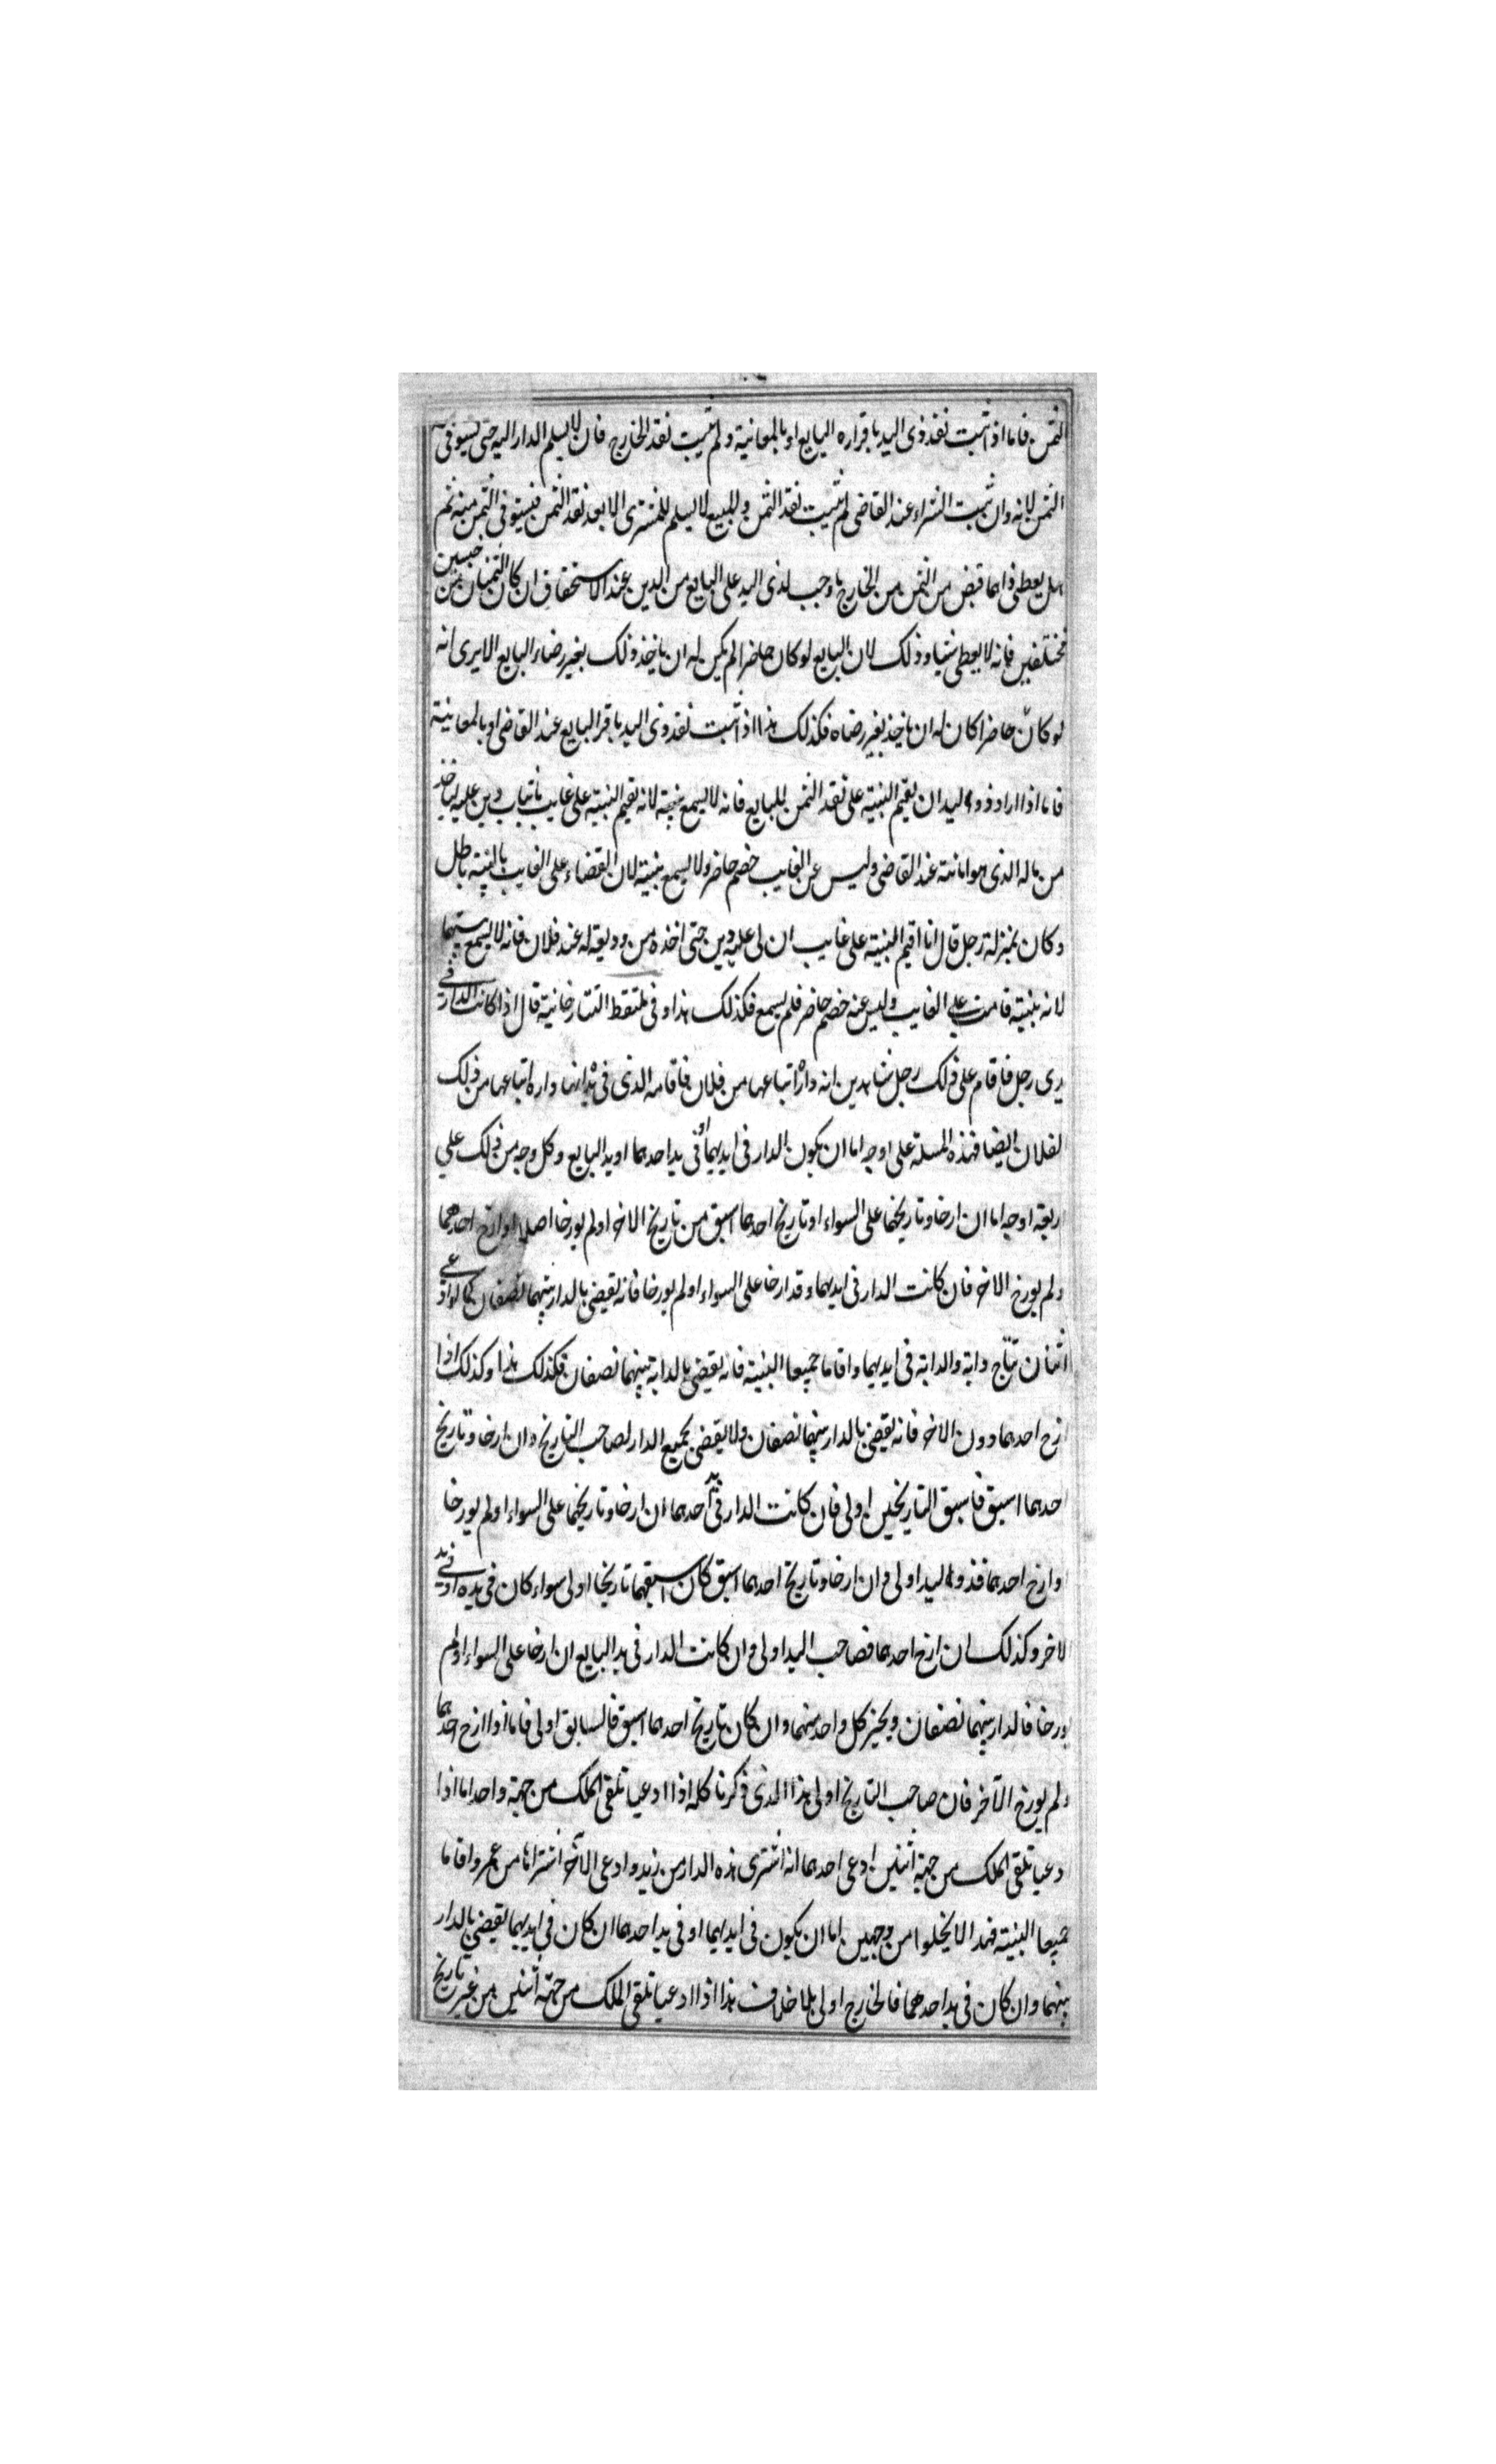 الثمن فاما اذا ثبت نقد ذى اليد باقراره البايع او بالمعانية ولم يثبت نقد الخارج فان لا يسلم الدار اليه حتى يستوفى
الثمن لانه وان ثبت الشراء عند القاضى لم يثبت نقد الثمن والمبيع لا يسلم للمشترى الا بعد نقد الثمن فيستوفى الثمن منه ثم
هل يعطى ذا مما قبض من الثمن من الخارج ما وجب لذى اليد على البايع من الدين عند الاستحقاق ان كان الثمنان من جنسين
مختلفين فانه لا يعطى شيا وذلك لان البايع لو كان حاضرا لم يكن له ان ياخذ ذلك بغير رضاء البايع الا يرى انه
لو كان حاضرا كان له ان ياخذ بغير رضاه فكذلك هذا اذا ثبت نقد ذى اليد باقر البايع عند القاضى او بالمعانية
فاما اذا اراد ذو اليد ان يقيم البنية على نقد الثمن للبايع فانه لا يسمع بينة لانه يقيم البنية على غايب باثبات دين عليه لياخذ
من ماله الذى هو امانته عند القاضى وليس عن الغايب خصم حاضر ولا يسمع بنية لان القضاء على الغايب بالبنية باطل
وكان بمنزلة رجل قال انا اقيم البنية على غايب ان لى عليه دين حتى اخذه من وديعة له عند فلان فانه لا يسمع
لانه بنية قامت على الغايب وليس عنه خصم حاضر فلم يسمع فكذلك هذا وفى ملتقط التتارخانية قال اذا كانت الدار فى
يدى رجل فاقام على ذلك رجل شاهدين انه داره ابتاعها من فلان فاقامه الذى فى يده انها داره ابتاعها من ذلك
لفلان ايضا فهذه المسلة على اوجه اما ان يكون الدار فى ايديهما او فى يد احدهما او يد البايع وكل وجه من ذلك على
اربعة اوجه اما ان ارخا وتاريخهما على السواء او تاريخ احدهما اسبق من تاريخ الاخر او لم يورخا اصلا او ارخ احدهما
ولم يورخ الاخر فان كانت الدار فى ايديهما وقد ارخا على السواء او لم يورخا فانه يقضى بالدار بينهما نصفان كما لو ادعى
اثنان نتاج دابة والدابة فى ايديهما واقاما جميعا البنية فانه يقضى بالدابة بينهما نصفان فكذلك هذا وكذلك اذا
ارخ احدهما دون الاخر فانه يقضى بالدار بينهما نصفان ولا يقضى بجميع الدار لصاحب التاريخ وان ارخا وتاريخ
احدهما اسبق فاسبق التاريخين اولى فان كانت الدار فى يد احدهما ان ارخا وتاريخهما على السواء او لم يورخا
او ارخ احدهما فذو اليد اولى وان ارخا وتاريخ احدهما اسبق كان اسبقهما تاريخا اولى سواء كان فى يده او فى يد
لاخر وكذلك ان ارخ احدهما فصاحب اليد اولى وان كانت الدار فى يد البايع ان ارخا على السواء او لم
يورخا فالدار بينهما نصفان ويخير كل واحد منهما وان كان تاريخ احدهما اسبق فالسابق اولى فاما اذا ارخ احدهما
ولم يورخ الآخر فان صاحب التاريخ اولى هذا الذى ذكرنا كله اذا ادعيا تلقى الملك من جهة واحد اما اذا
ادعيا تلقى الملك من جهة اثنين ادعى احدهما انه اشترى هذه الدار من زيد وادعى الآخر اشتراها من عمرو اقاما
جميعا البنية فهذا لا يخلوا من وجهين اما ان يكون فى ايديهما او فى يد احدهما ان كان فى ايديهما يقضى بالدار
بينهما وان كان فى يد احدهما فالخارج اولى بلا خلاف هذا اذا ادعيا تلقى الملك من جهة اثنين من غير تاريخ